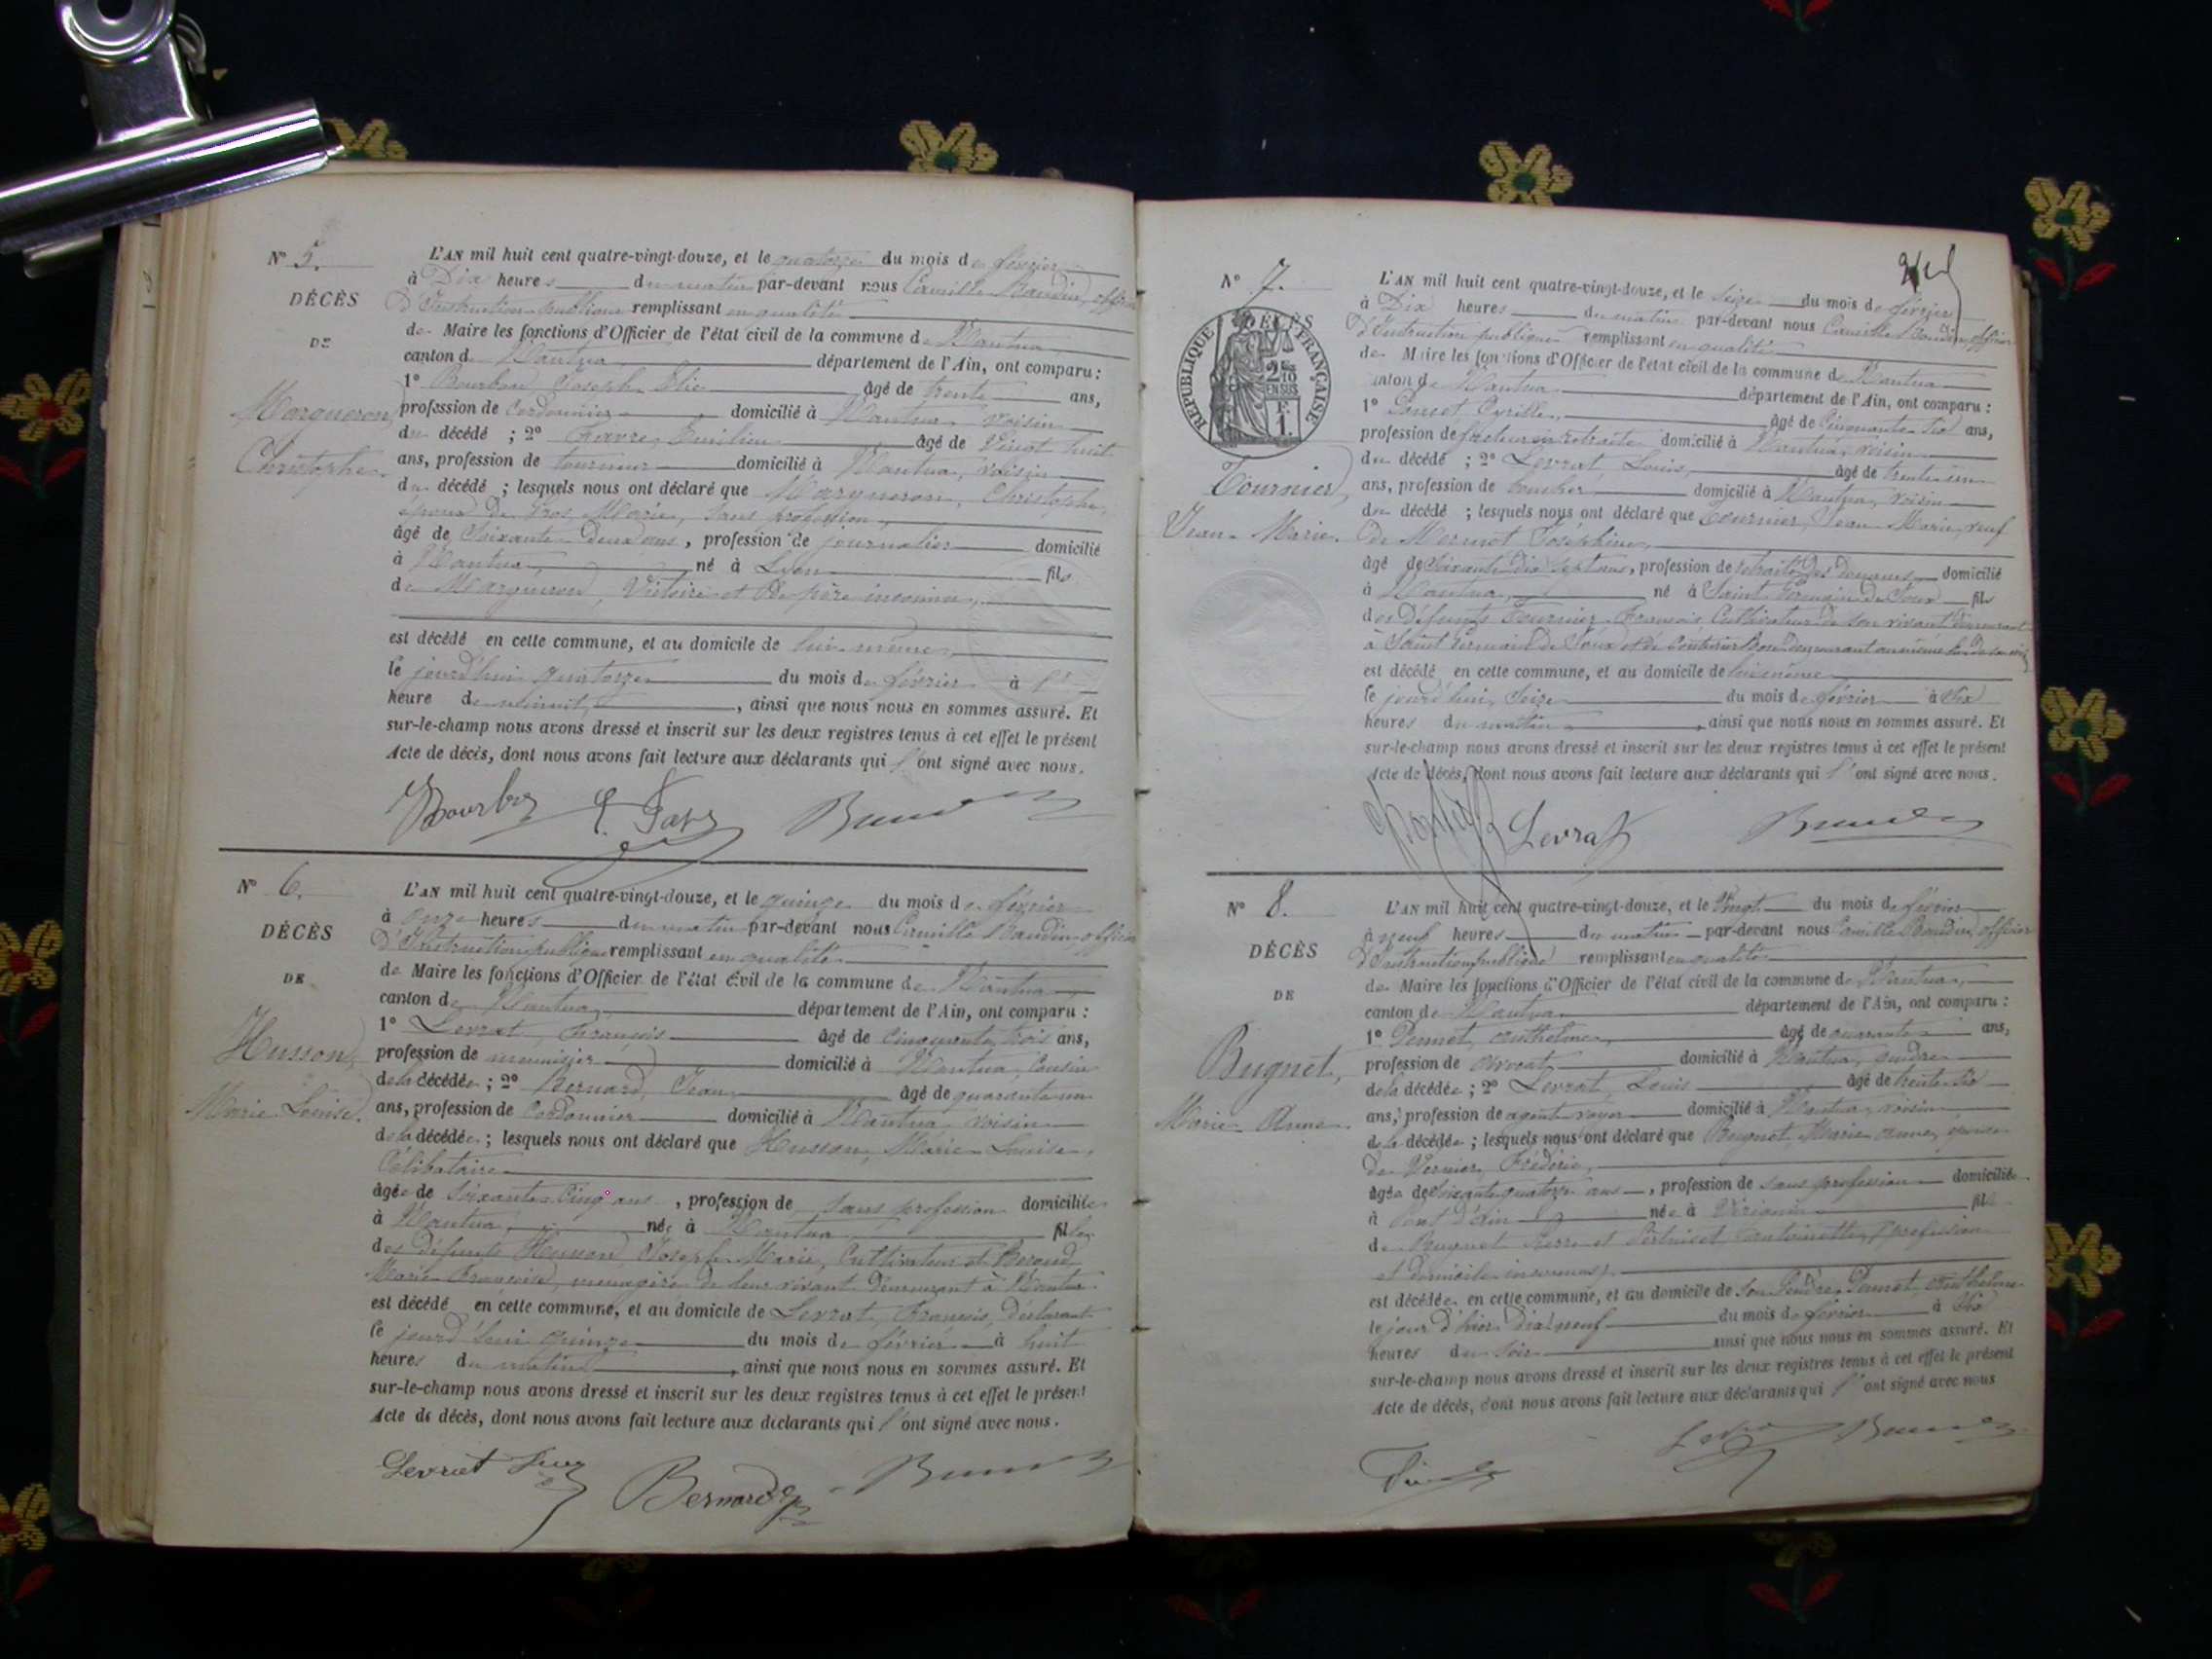 N° 5.
DÉCÈS
DE
Margueron,
Christophe.
L'AN mil huit cent quatre-vingt-douze, et le quatorze du mois de février
à Dix heures du matin par-devant nous Camille Baudin, officier
D'Instruction publique remplissant en qualité
de Maire les fonctions d'Officier de l'état civil de la commune de Nantua
canton de Nantua département de l'Ain, ont comparu :
1° Bourbon, Joseph Elie âgé de trente ans,
profession de Cordonnier domicilié à Nantua, voisin
du décédé ; 2° Favre, Emilien âgé de Vingt huit
ans, profession de tourneur domicilié à Nantua, voisin
du décédé ; lesquels nous ont déclaré que Margueron, Christophe,
époux de Gros, Marie, sans profession,
âgé de Soixante Deux ans, profession de journalier domicilié
à Nantua, né à Lyon fils
de Margueron, Victoire et De père inconnu,
est décédé en cette commune, et au domicile de lui-même,
le jourd'hui quatorze du mois de février à
heure de minuit, ainsi que nous nous en sommes assuré. Et
sur-le-champ nous avons dressé et inscrit sur les deux registres tenus à cet effet le présent
Acte de décès, dont nous avons fait lecture aux déclarants qui l'ont signé avec nous.
N° 6.
DÉCÈS
DE
Husson,
Marie Louise.
L'AN mil huit cent quatre-vingt-douze, et le quinze du mois de février
à onze heures du matin par-devant nous Camille Baudin officier
D'Instruction publique remplissant en qualité
de Maire les fonctions d'Officier de l'état civil de la commune de Nantua
canton de Nantua, département de l'Ain, ont comparu :
1° Levrat, François âgé de Cinquante trois ans,
profession de menuisier domicilié à Nantua, Cousin
de la décédée ; 2° Bernard, Jean, âgé de quarante un
ans, profession de Cordonnier domicilié à Nantua, voisin
de la décédée ; lesquels nous ont déclaré que Husson, Marie Louise,
Célibataire
âgée de Soixante Cinq ans, profession de sans profession domiciliée
à Nantua, née à Nantua fille
des défunts Husson, Joseph Marie, Cultivateur et Beroud
Marie Françoise, menagère de leur vivant Demeurant à Nantua
est décédé en cette commune, et au domicile de Levrat, François, déclarant
le jourd'hui quinze du mois de février à huit
heures du matin, ainsi que nous nous en sommes assuré. Et
sur-le-champ nous avons dressé et inscrit sur les deux registres tenus à cet effet le présent
Acte de décès, dont nous avons fait lecture aux déclarants qui l'ont signé avec nous.
Bernard
N° 7.
DÉCÈS
RÉPUBLIQUE FRANÇAISE
2/10
EN SUS
F.
1.
Tournier,
Jean-Marie.
L'AN mil huit cent quatre-vingt-douze, et le seize du mois de février
à Dix heures du matin par-devant nous Camille Baudin officier
d'Instruction publique remplissant en qualité
de Maire les fonctions d'Officier de l'état civil de la commune de Nantua
canton de Nantua département de l'Ain, ont comparu :
1° Cyrille, âgé de Cinquante Six ans,
profession de facteur en retraite domicilié à Nantua, voisin
du décédé ; 2° Levrat, Louis, âgé de trente un
ans, profession de boucher domicilié à Nantua, voisin
du décédé ; lesquels nous ont déclaré que Tournier, Jean-Marie, veuf
De Mermet Joséphine,
âgé de Soixante Dix Sept ans, profession de retraité des Douanes domicilié
à Nantua, né à Saint Germain de Joux fils
des Défunts Tournier François, Cultivateur de son vivant Demeurant
à Saint Germain de Joux
est décédé en cette commune, et au domicile de lui-même
le jourd'hui, Seize du mois de février à Six
heures du matin, ainsi que nous nous en sommes assuré. Et
sur-le-champ nous avons dressé et inscrit sur les deux registres tenus à cet effet le présent
Acte de décès, dont nous avons fait lecture aux déclarants qui l'ont signé avec nous.
Levrat
N° 8.
DÉCÈS
DE
Bugnet,
Marie-Anne.
L'AN mil huit cent quatre-vingt-douze, et le Vingt du mois de février
à neuf heures du matin par-devant nous Camille Baudin, officier
D'Instruction publique remplissant en qualité
de Maire les fonctions d'Officier de l'état civil de la commune de Nantua,
canton de Nantua département de l'Ain, ont comparu :
1° Anthelme, âgé de quarante ans,
profession de avocat domicilié à Nantua, gendre
de la décédée ; 2° Levrat, Louis âgé de trente Six
ans, profession de agent voyer domicilié à Nantua, voisin
de la décédée ; lesquels nous ont déclaré que Bugnet, Marie Anne, épouse
De Vernier, Frédéric,
âgée de Soixante quatorze ans, profession de sans profession domiciliée
à Pont D'Ain née à fille
de Bugnet Pierre et Antoinette, (profession
et domicile inconnus).
est décédée en cette commune, et au domicile de son Gendre, Anthelme
le jour d'hier Dix neuf du mois de février à Six
heures du soir ainsi que nous nous en sommes assuré. Et
sur-le-champ nous avons dressé et inscrit sur les deux registres tenus à cet effet le présent
Acte de décès, dont nous avons fait lecture aux déclarants qui l'ont signé avec nous